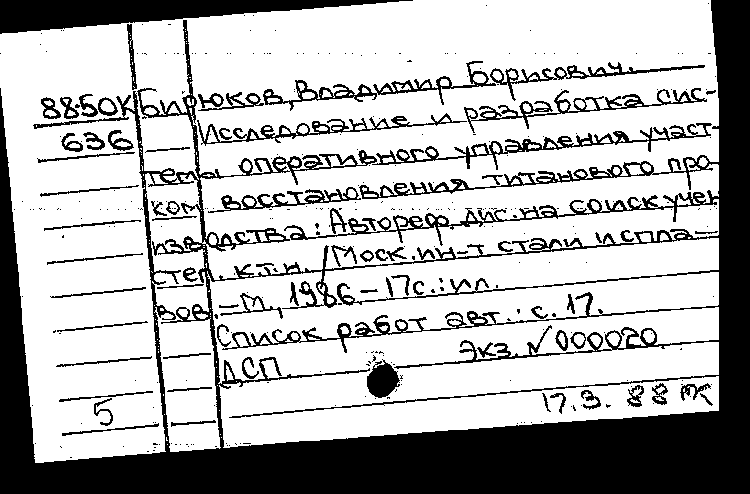 88-50К Бирюков, Владимир Борисович.
636 Исследование и разработка сис-
темы оперативного управления участ-
ком восстановления титанового про-
изводства: Автореф. дис. на соиск. учен
степ. к.т.н. / Моск. ин-т стали и спла-
вов. – М., 1986. – 17с.: ил.
Список работ авт.: с. 17.
ДСП. Экз. √000020
5 17.3. 88